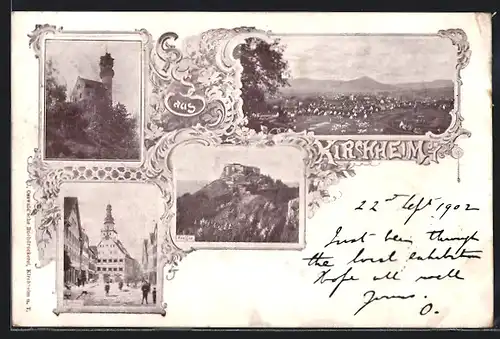 aus
KIRCHHEIM u. T.
22nd Sept. 1902
Just been through
the local exhibition
Hope all well
Yours.
O.